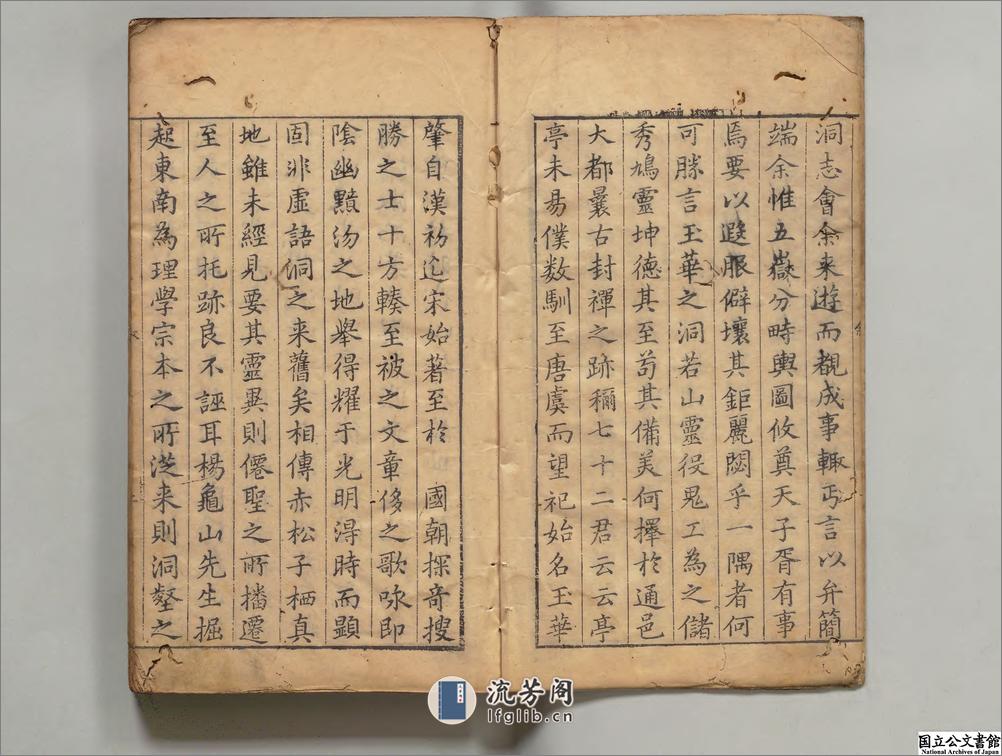 洞志會余来遊而觀成事輒丐言以弁簡
端余惟五嶽分畤輿圖攸奠天子胥有事
焉要以遐陬僻壤其鉅麗閟乎一隅者何
可勝言玉華之洞若山靈役鬼工為之儲
秀鳩靈坤德其至苟其備美何擇於通邑
大都曩古封禪之跡稱七十二君云云亭
亭未易僕數馴至唐虞而望祀始名玉華
肇自漢初迄宋始著至於 國朝探奇搜
勝之士十方輳至被之文章侈之歌咏即
陰幽黯沕之地舉得耀于光明得時而顯
固非虛語洞之来舊矣相傳赤松子栖真
地雖未經見要其靈異則僊聖之所播遷
至人之所托跡良不誣耳楊龜山先生崛
起東南為理學宗本之所從来則洞壑之
流芳阁
lfglib.cn
国立公文書館
National Archives of Japan